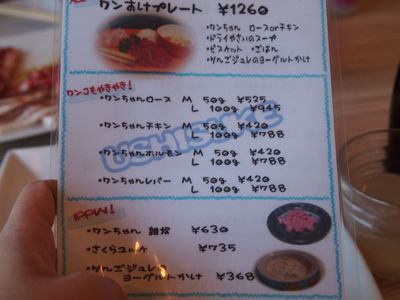 ワンすけプレート ¥1260
・ワンちゃん ロースorチキン
・ドライやさいのスープ
・ビスケット ・ごはん
・りんごジュレのヨーグルトかけ
ワンコもやきやき!
・ワンちゃんロース M 50g ¥525
L 100g ¥945
・ワンちゃんチキン M 50g ¥420
L 100g ¥788
USHISUKE
・ワンちゃんホルモン M 50g ¥420
L 100g ¥788
・ワンちゃんレバー M 50g ¥420
L 100g ¥788
IPPIN!
・ワンちゃん 雑炊 ¥630
・さくらユッケ ¥735
・りんごジュレの
ヨーグルトかけ ¥368